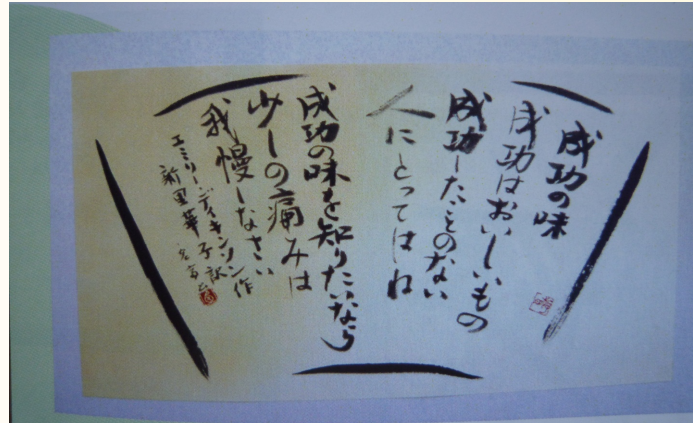 成功の味
成功はおいしいもの
成功したことのない
人にとってはね
成功の味を知りたいなら
少しの痛みは
我慢しなさい
エミリー・ディキンソン作
新里華子訳